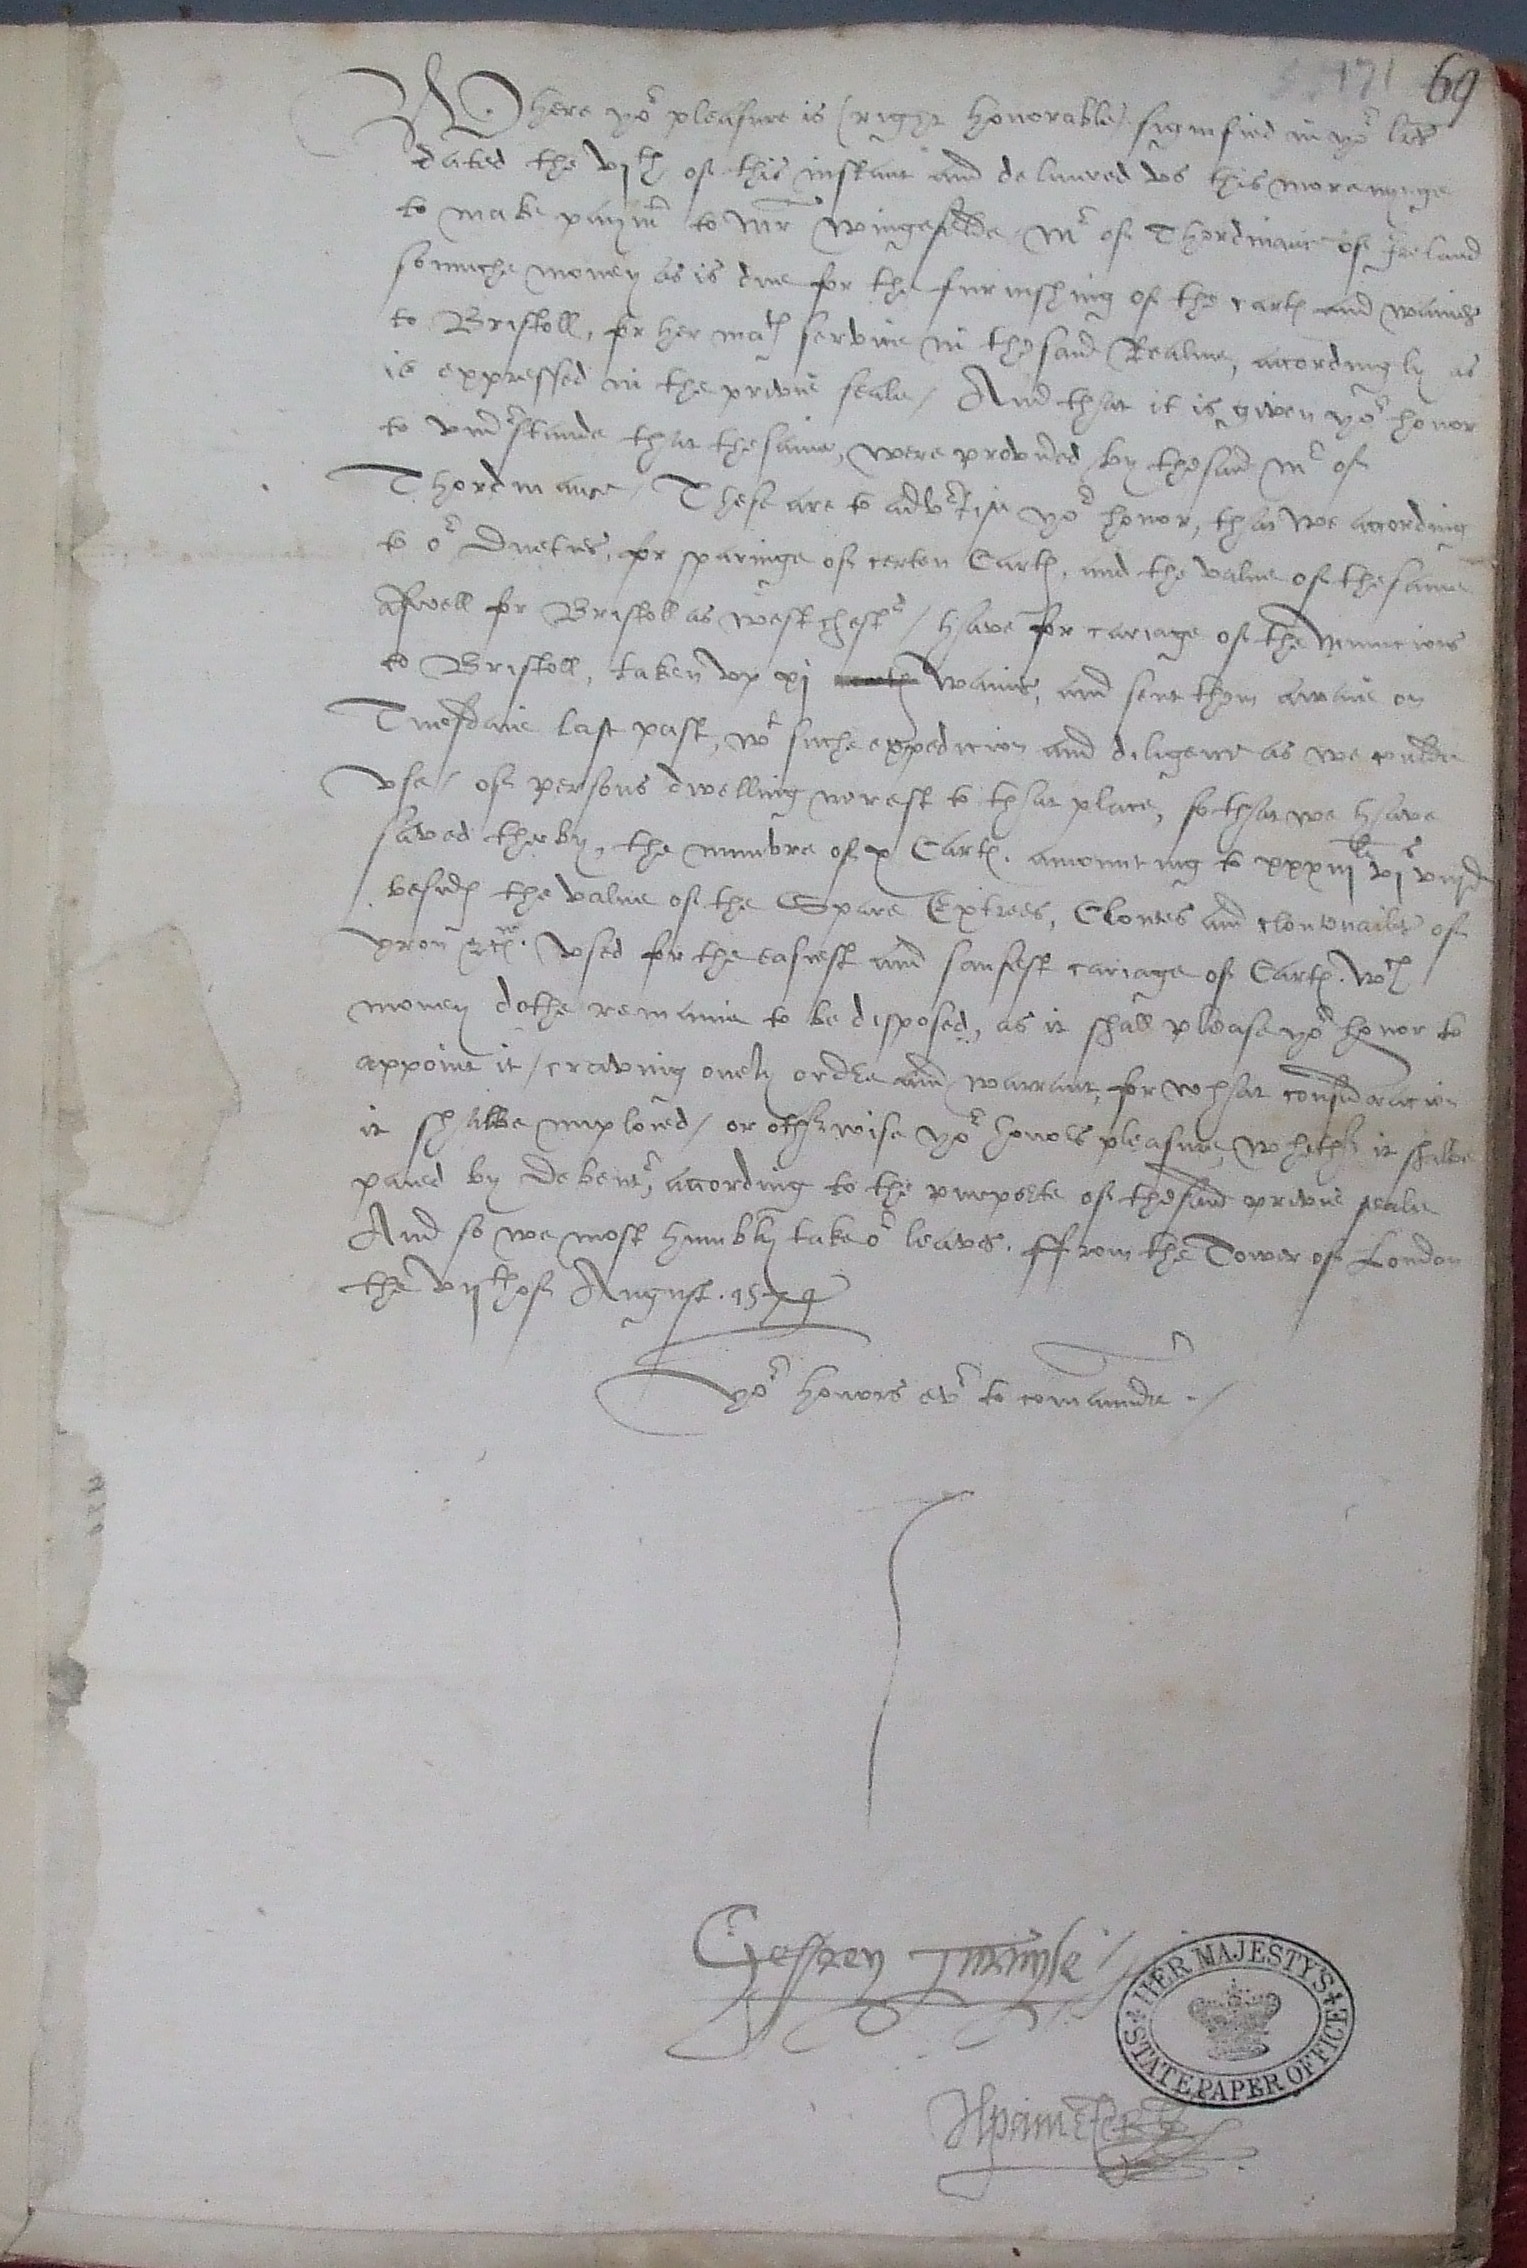 171 69
Where yor pleasure is (right honorable) signified in yor lres
dated the vjth of this instant and deliuered vs this morenynge
to make paymt to Mr Wingefelde Mr of Thordinance of Ireland
somuche money as is due for the furnishing of the cart and waines
to Bristoll, for her mats service in the said Realme, accordingly as
is expressed in the privie seale / And that it is given yor honor
to vnderstande that the same, were provided by the said Mr of
Thordinance / These are to advertise yor honor, that we according
to or Dueties, for sparinge of certen Carts, and the value of the same
aswell for Bristoll as westchester / have for cariage of the Municions
to Bristoll, taken vp xj waines, and sent them awaie on
Tuesdaie last past, wt suche expedicion and diligence as we coulde
vse / of persons dwelling nerest to that place, so that we have
saved therby, the numbre of x Carts. amounting to xxxiij li vj s viij d
besides the value of the Spare Extrees, Cloutes and cloutnailes of
yron &c. vsed for the easiest and saufest cariage of Carts. wch
money dothe remaine to be disposed, as it shall please yor honor to
appoint it / craving onely order and warrant, for what consideracion
it shalbe imploied / or otherwise yor honors pleasure, whether it shalbe
paied by Debentr, according to the purporte of the said privie seale
And so we most humbly take or leaves. ffrom the Tower of London
the vijth of August. 1574
yor honors evr to comaunde ./
Geffrey Turvyle
HPainter
HER MAJESTY'S
STATE PAPER OFFICE